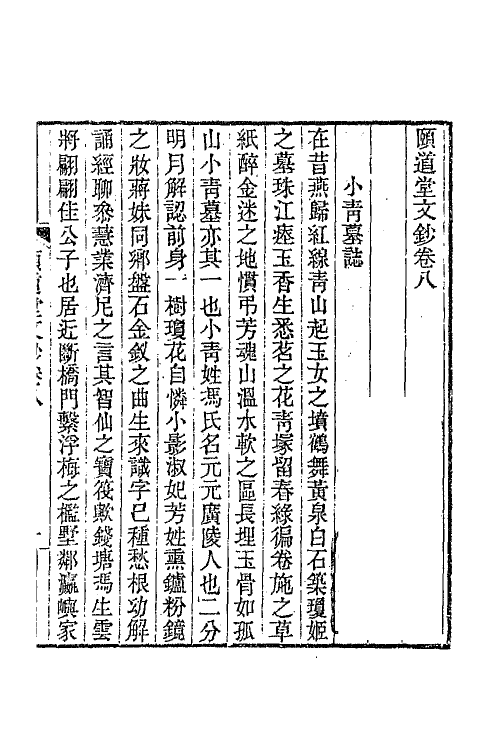 頤道堂文鈔卷八
小靑墓誌
在昔燕歸紅線靑山起玉女之墳鶴舞黃泉白石築瓊姬
之墓珠江瘞玉香生悉茗之花靑塚留春綠徧卷施之草
紙醉金迷之地慣弔芳魂山溫水軟之區長埋玉骨如孤
山小靑墓亦其一也小靑姓馮氏名元元廣陵人也二分
明月解認前身一樹瓊花自憐小影淑妃芳姓熏鑪粉鏡
之妝蔣妹同鄉盤石金釵之曲生來識字已種愁根功解
誦經聊叅慧業濟尼之言其智仙之寶筏歟錢塘馮生雲
將翩翩佳公子也居近斷橋門繫浮梅之檻墅鄰瀛嶼家
頤道堂文鈔卷八
一